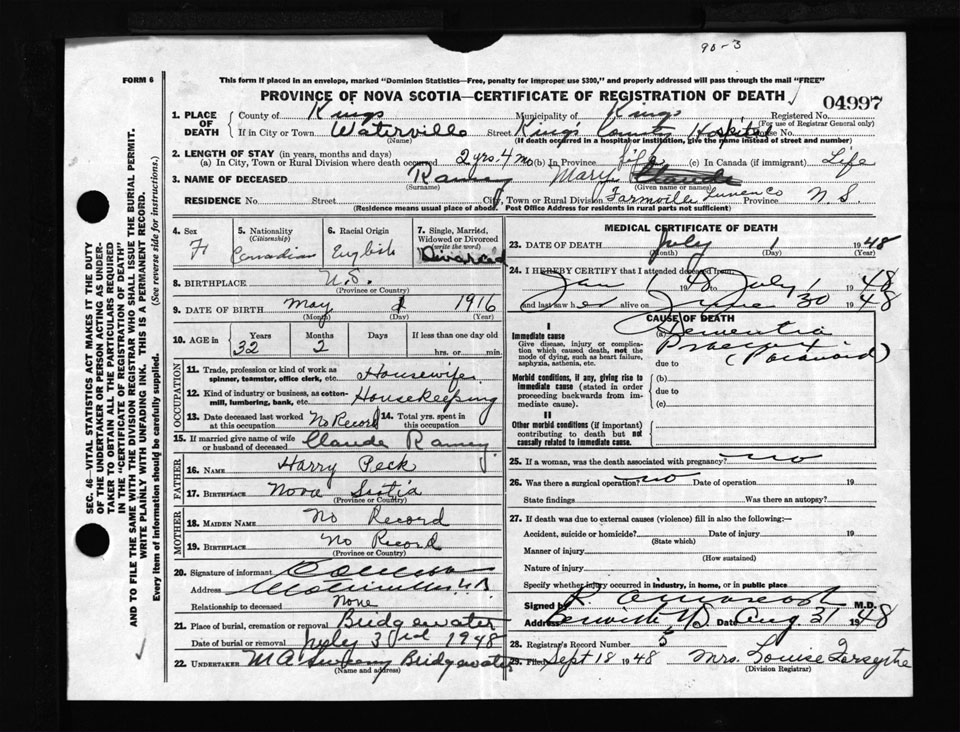 90-3
FORM 6
This form if placed in an envelope, marked "Dominion Statistics—Free, penalty for improper use $300," and properly addressed will pass through the mail "FREE"
PROVINCE OF NOVA SCOTIA—CERTIFICATE OF REGISTRATION OF DEATH
04997
1. PLACE OF DEATH
County of Kings Municipality of Kings Registered No.
(For use of Registrar General only)
If in City or Town Waterville Street King's County Hospital House No.
(Name) (If death occurred in a hospital or institution, give the name instead of street and number)
2. LENGTH OF STAY (in years, months and days)
(a) In City, Town or Rural Division where death occurred 2 yrs. 4 mo (b) In Province life (c) In Canada (if immigrant) Life
3. NAME OF DECEASED Ramey Mary Claude
(Surname) (Given name or names)
RESIDENCE No. Street City, Town or Rural Division Farmville Lunen Co Province N. S.
(Residence means usual place of abode. Post Office Address for residents in rural parts not sufficient)
4. Sex F
5. Nationality (Citizenship) Canadian
6. Racial Origin English
7. Single, Married, Widowed or Divorced (write the word) Divorced
8. BIRTHPLACE N.S.
(Province or Country)
9. DATE OF BIRTH May 1 1916
(Month) (Day) (Year)
10. AGE Years 32 Months 2 Days If less than one day old
hrs. or min.
OCCUPATION
11. Trade, profession or kind of work as spinner, teamster, office clerk, etc. Housewife
12. Kind of industry or business, as cotton-mill, lumbering, bank, etc. Housekeeping
13. Date deceased last worked at this occupation No Record 14. Total yrs. spent in this occupation
15. If married give name of wife or husband of deceased Claude Ramey
FATHER
16. NAME Harry Peck
17. BIRTHPLACE Nova Scotia
(Province or Country)
MOTHER
18. MAIDEN NAME No Record
19. BIRTHPLACE No Record
(Province or Country)
20. Signature of informant
Address
Relationship to deceased None
21. Place of burial, cremation or removal Bridgewater
Date of burial or removal July 3rd 1948
22. UNDERTAKER M A Sweeny Bridgewater
(Name and address)
MEDICAL CERTIFICATE OF DEATH
23. DATE OF DEATH July 1 1948
(Month) (Day) (Year)
24. I HEREBY CERTIFY that I attended deceased from
Jan 1 48 July 1 1948
and last saw her alive on June 30 1948
CAUSE OF DEATH
I
Immediate cause
Give disease, injury or complication which caused death, not the mode of dying, such as heart failure, asphyxia, asthenia, etc.
(a) Dementia Praecox (Paranoid)
due to
Morbid conditions, if any, giving rise to immediate cause (stated in order proceeding backwards from immediate cause).
(b)
due to
(c)
II
Other morbid conditions (if important) contributing to death but not causally related to immediate cause.
25. If a woman, was the death associated with pregnancy? no
26. Was there a surgical operation? no Date of operation 19
State findings Was there an autopsy?
27. If death was due to external causes (violence) fill in also the following:—
Accident, suicide or homicide? Date of injury 19
(State which)
Manner of injury
(How sustained)
Nature of injury
Specify whether injury occurred in industry, in home, or in public place
Signed by M.D.
Address Berwick NS Date Aug. 31 1948
28. Registrar's Record Number 5
29. Filed Sept 18 1948 Mrs. Louise Forsythe
(Division Registrar)
SEC. 46—VITAL STATISTICS ACT MAKES IT THE DUTY
OF THE UNDERTAKER OR PERSON ACTING AS UNDER-
TAKER TO OBTAIN ALL THE PARTICULARS REQUIRED
IN THE "CERTIFICATE OF REGISTRATION OF DEATH"
AND TO FILE THE SAME WITH THE DIVISION REGISTRAR WHO SHALL ISSUE THE BURIAL PERMIT.
WRITE PLAINLY WITH UNFADING INK. THIS IS A PERMANENT RECORD.
Every item of information should be carefully supplied. (See reverse side for instructions.)